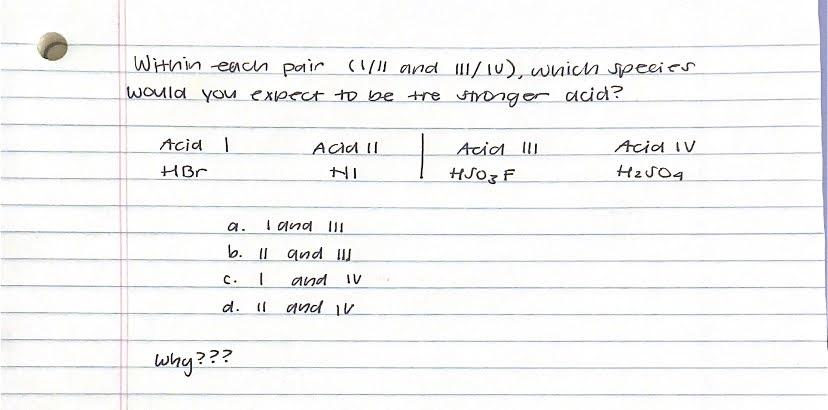 Within each pair (I/II and III/IV), which species
would you expect to be the stronger acid?
Acid I Acid II | Acid III Acid IV
HBr HI HSO3F H2SO4
a. I and III
b. II and III
c. I and IV
d. II and IV
Why???